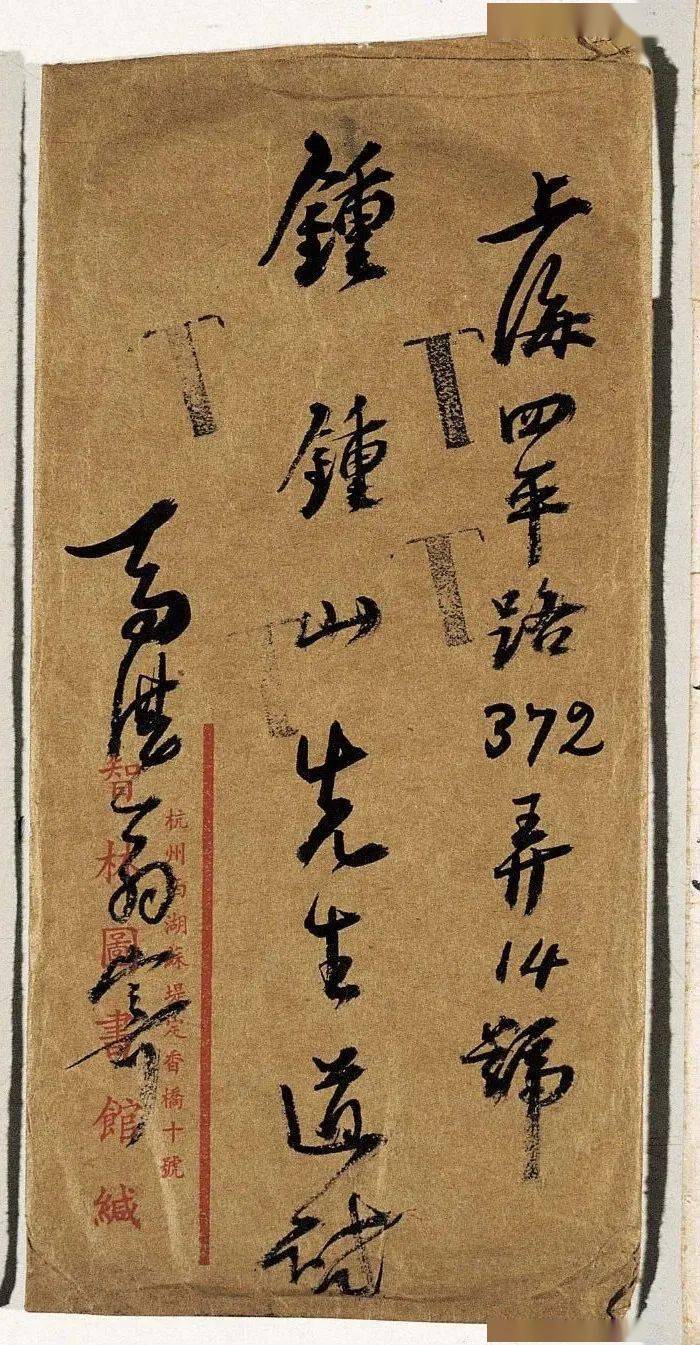 上海四平路372弄14號
鍾鍾山先生道
杭州西湖蘇堤定香橋十號
智林圖書館緘
馬湛翁寄
T
T
T
T